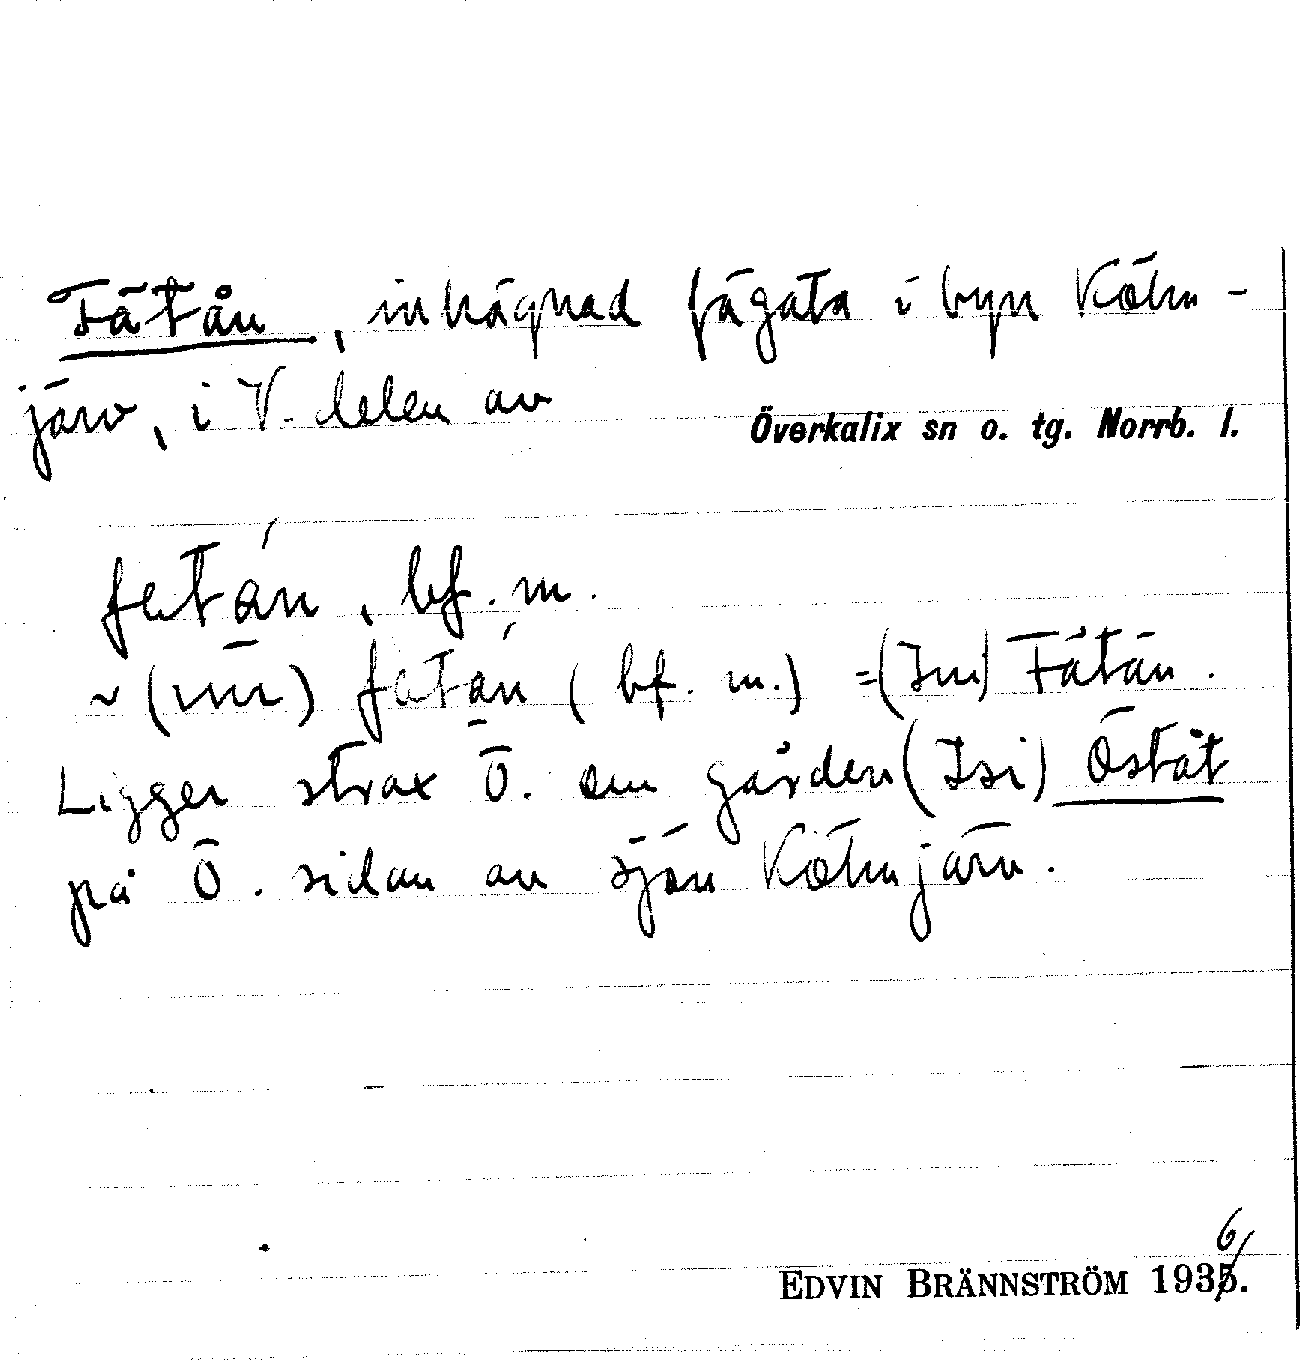 Fätån, inhägnad fägata i byn Kölm-
järv, i V. delen av
Överkalix sn o. tg. Norrb. l.
fetán, bf. m.
~ (um) fatán (bf. m.) = (Im) Fätån.
Ligger strax Ö. om gården (Isi) Öståt
på Ö. sidan av sjön Kölmjärv.
6/
EDVIN BRÄNNSTRÖM 1935.